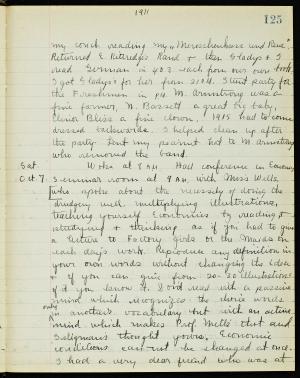 1911
125
my couch reading my "Menschenhass und Reue"
Returned E. Kittredge's Rand & then Gladys & I
read German in 403 each from our own book.
I got Gladys's for her from 210 H. Stunt party for
the Freshmen in p4. M. Armstrong was a
fine farmer, N. Bassett a great big baby,
Elinor Bliss a fine clown, 1915 had to come
dressed backwards. I helped clean up after
the party. Lent my peanut hat to M. Armstrong
who removed the band.
Sat. Woke at 7 AM. Had conference in Economics
Oct 7. Seminar room at 9 AM with Miss Wells
who spoke about the necessity of doing the
drudgery well, multiplying illustrations,
teaching yourself Economics by reading &
studying & thinking as if you had to give
a lecture to Factory Girls or the Maids on
each day's work. Reproduce any definition in
your own words without changing the idea
& if you can give from 20-30 illustrations
of it you know it. Do not read with a passive
mind which recognizes the choice words
only in another's vocabulary but with an active
mind which makes Prof. Mill's that and
Seligman's thought yours. Economic
conditions can not be changed at once.
I had a very dear friend who was at